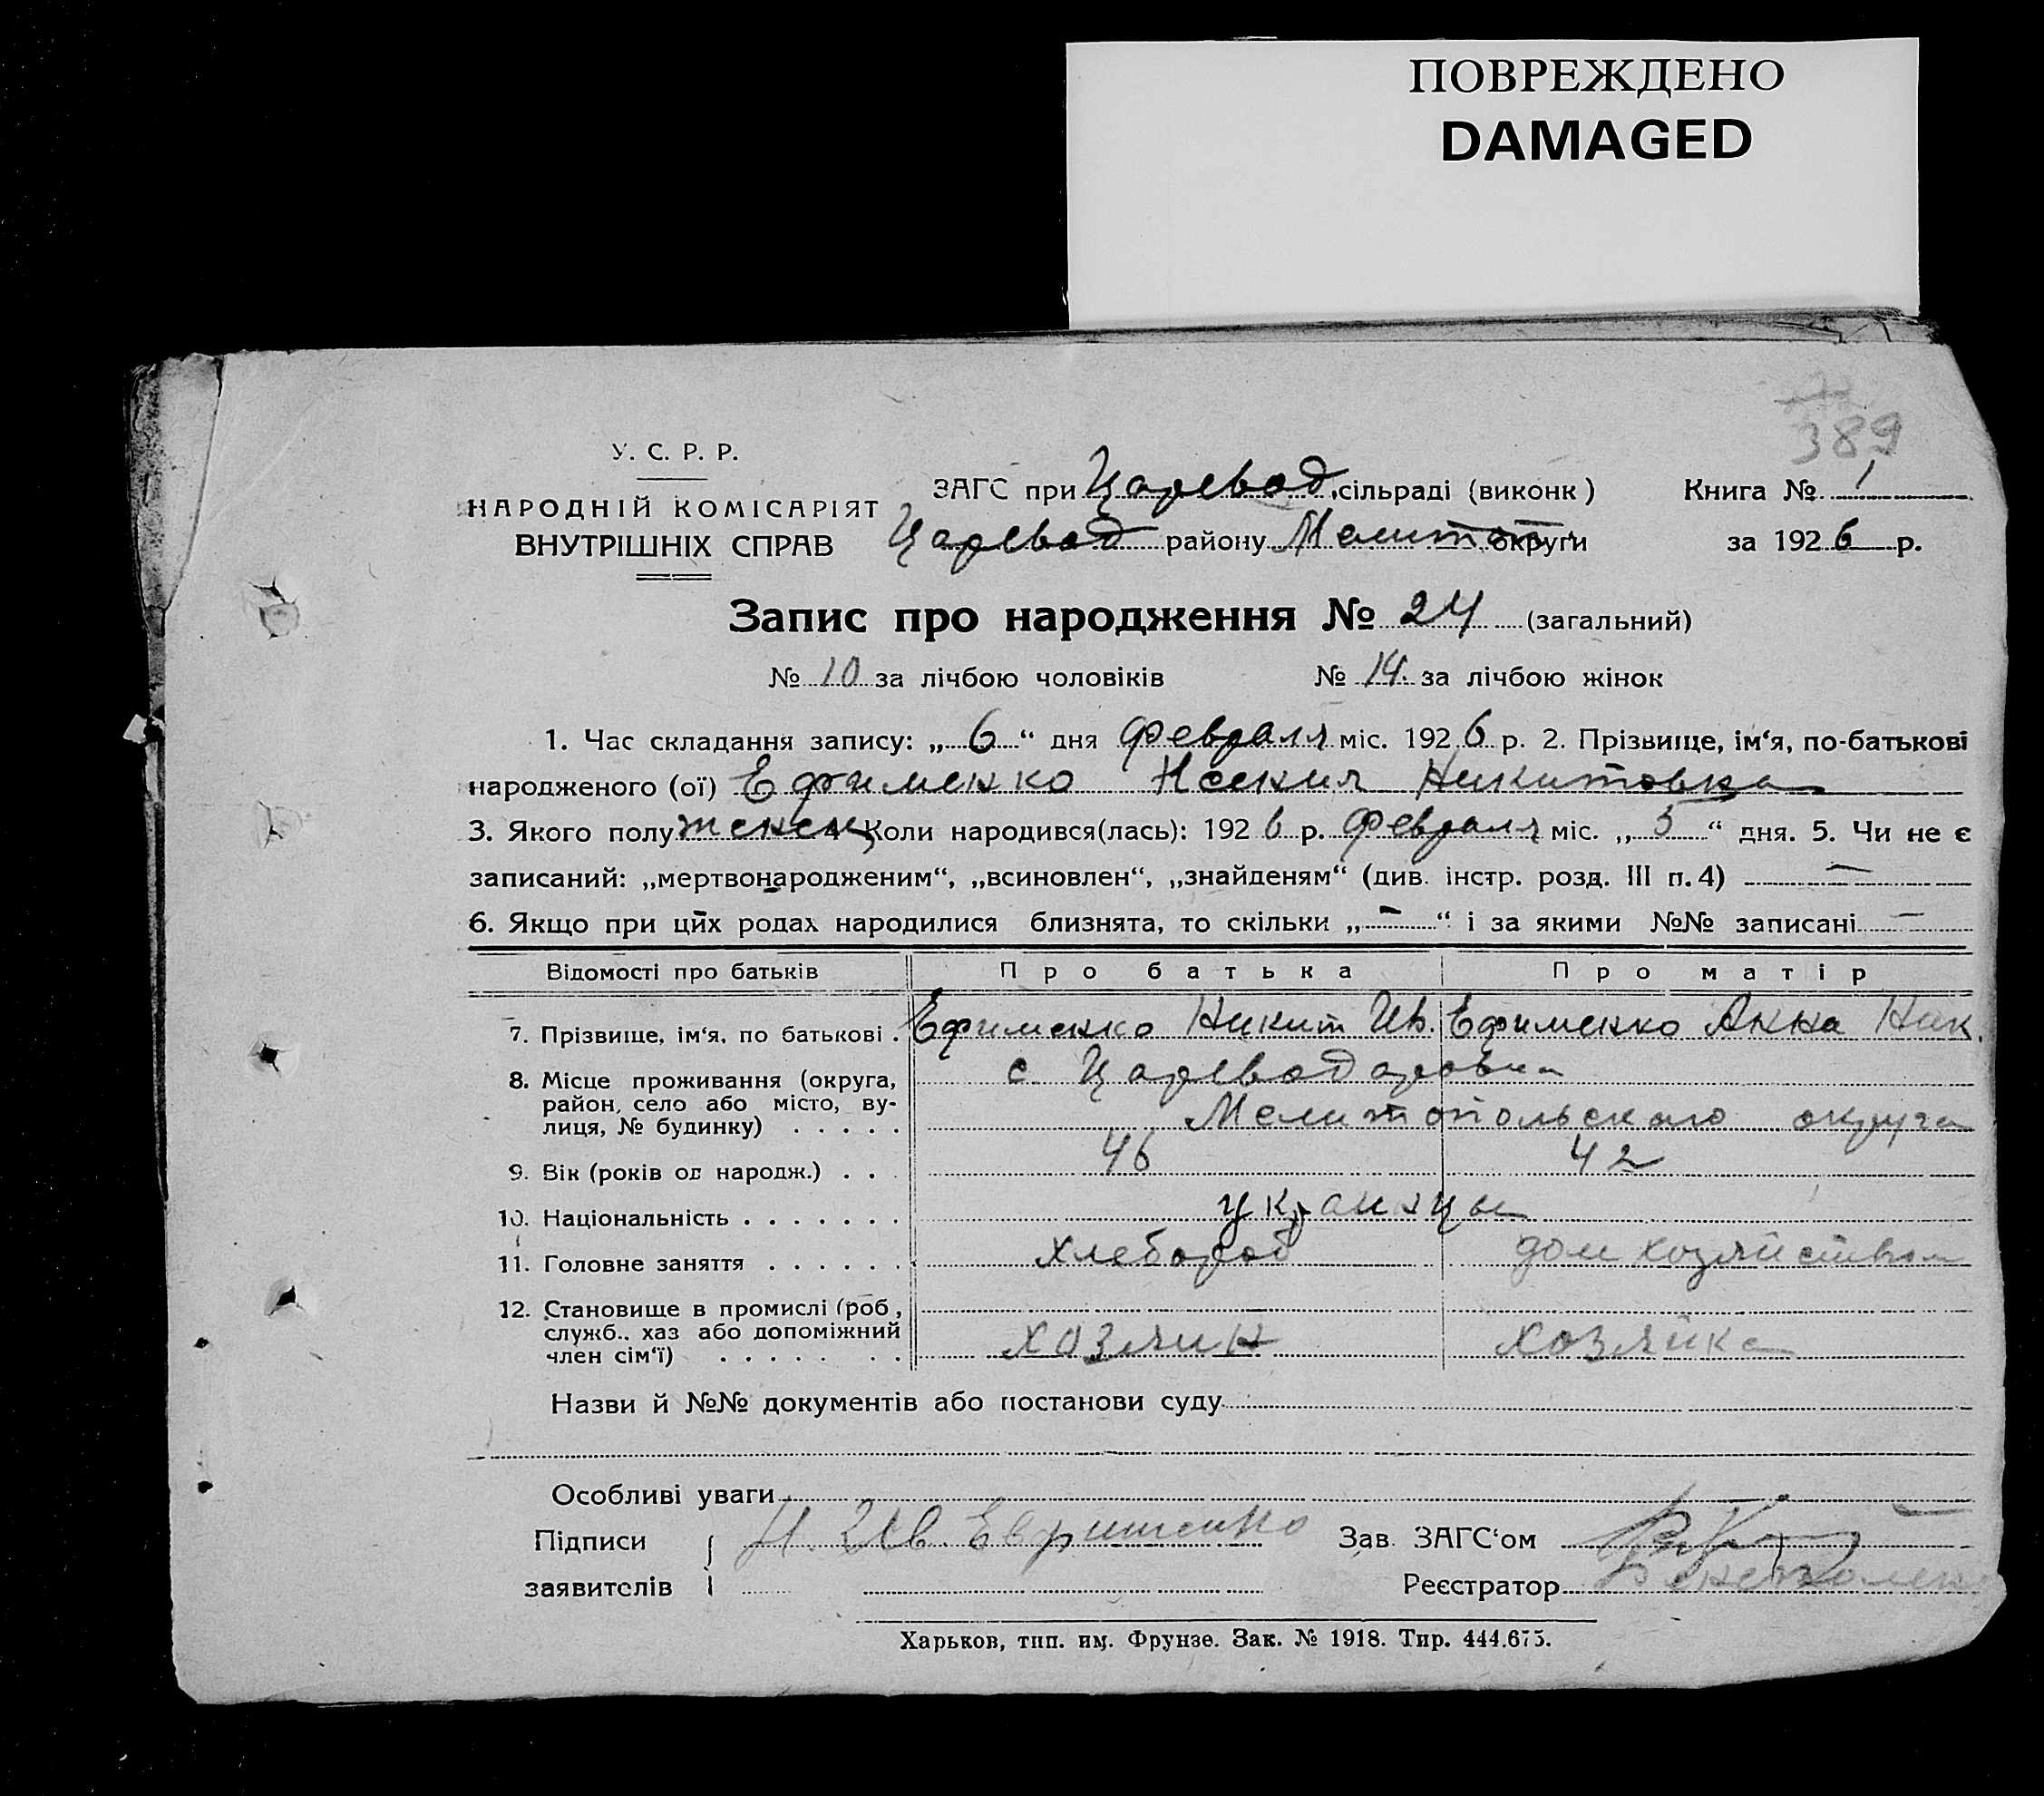 ПОВРЕЖДЕНО
DAMAGED
389
У. С. Р. Р.
НАРОДНІЙ КОМІСАРІЯТ
ВНУТРІШНІХ СПРАВ
ЗАГС при Царевод. сільраді (виконк)
Книга № 1
Царевод району Мелитоп. округи
за 1926 р.
Запис про народження № 24 (загальний)
№ 10 за лічбою чоловіків № 14. за лічбою жінок
1. Час складання запису: „6“ дня февраля міс. 1926 р. 2. Прізвище, ім'я, по-батькові
народженого (ої) Ефименко Никитовна
3. Якого полу женск 4 Коли народився(лась): 1926 р. февраля міс. „5“ дня. 5. Чи не є
записаний: „мертвонародженим“, „всиновлен“, „знайденям“ (див. інстр. розд. III п. 4) —
6. Якщо при цих родах народилися близнята, то скільки „—“ і за якими №№ записані —
Відомості про батьків Про батька Про матір
7. Прізвище, ім'я, по батькові . Ефименко Никит Ив. Ефименко Анна Ник.
8. Місце проживання (округа, район, село або місто, вулиця, № будинку) . . . . .
с. Цареводаровки
Мелитопольского округа
9. Вік (років од народж.) . . 46 42
10. Національність . . . . . . . украинцы
11. Головне заняття . . . . . . хлебороб дом хозяйством
12. Становище в промислі (роб, служб., хаз або допоміжний член сім'ї) . . . . . . . хозяин хозяйка
Назви й №№ документів або постанови суду
Особливі уваги
Підписи заявителів Н. Ив. Евфименко
Зав. ЗАГС'ом
Реєстратор
Харьков, тип. им. Фрунзе. Зак. № 1918. Тир. 444.675.